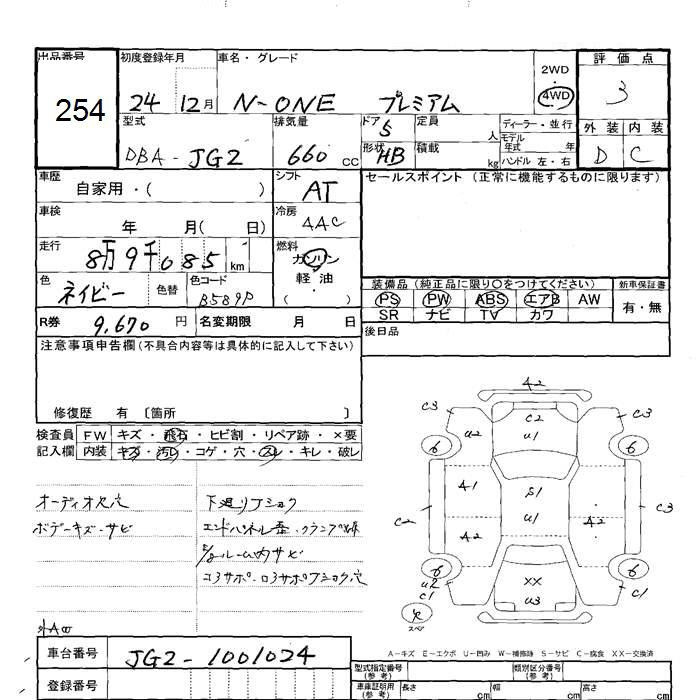 出品番号 初度登録年月 車名・グレード 2WD 評価点
254 24 12月 N-ONE プレミアム 4WD 3
型式 排気量 ドア 5 定員 人 ディーラー・並行 外装 内装
DBA-JG2 660 cc 形状 HB 積載 kg モデル年式 年 D C
ハンドル 左・右
車歴 自家用・( ) シフト AT セールスポイント (正常に機能するものに限ります)
車検 年 月( 日) 冷房 AAC
走行 8万9千085 km 燃料 ガソリン
軽油
( )
色 ネイビー 色替 色コード B589P 装備品 (純正品に限り○をつけてください) 新車保証書
PS PW ABS エアB AW 有・無
SR ナビ TV カワ
R券 9,670 円 名変期限 月 日 後日品
注意事項申告欄(不具合内容等は具体的に記入して下さい)
修復歴 有 〔箇所 〕
検査員 FW キズ・飛石・ヒビ割・リペア跡・×要
記入欄 内装 キズ・汚レ・コゲ・穴・スレ・キレ・破レ
オーディオ欠穴 下廻りフショク
ボデーキズ・サビ エンドパネル歪・クランプ
ルーム内サビ
コアサポ
A2
C3 C2 C3
U2 U1
6 6
A1 S1
C2 U1 A2 C3
A2
6 XX 6
U2 C1 U3 C1
スペア
A-キズ E-エクボ U-凹み W-補修跡 S-サビ C-腐食 XX-交換済
車台番号 JG2-1001024 型式指定番号 (参考) 類別区分番号 (参考)
登録番号 車庫証明用 (参考) 長さ cm 幅 cm 高さ cm